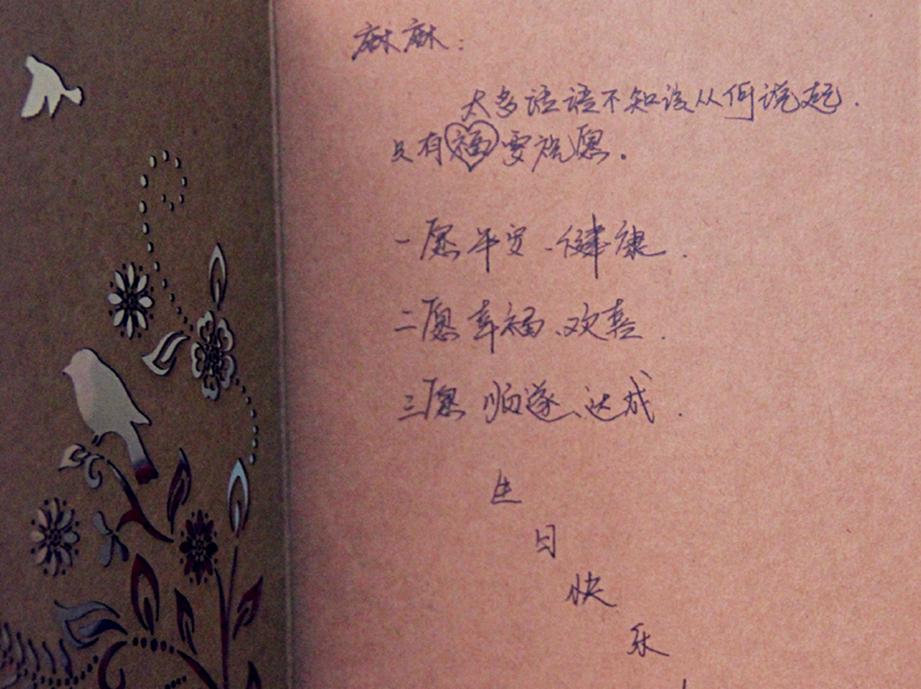 麻麻：
太多话语不知该从何说起.
只有福要祝愿.
一愿平安、健康.
二愿幸福、欢喜.
三愿顺遂、达成.
生
日
快
乐